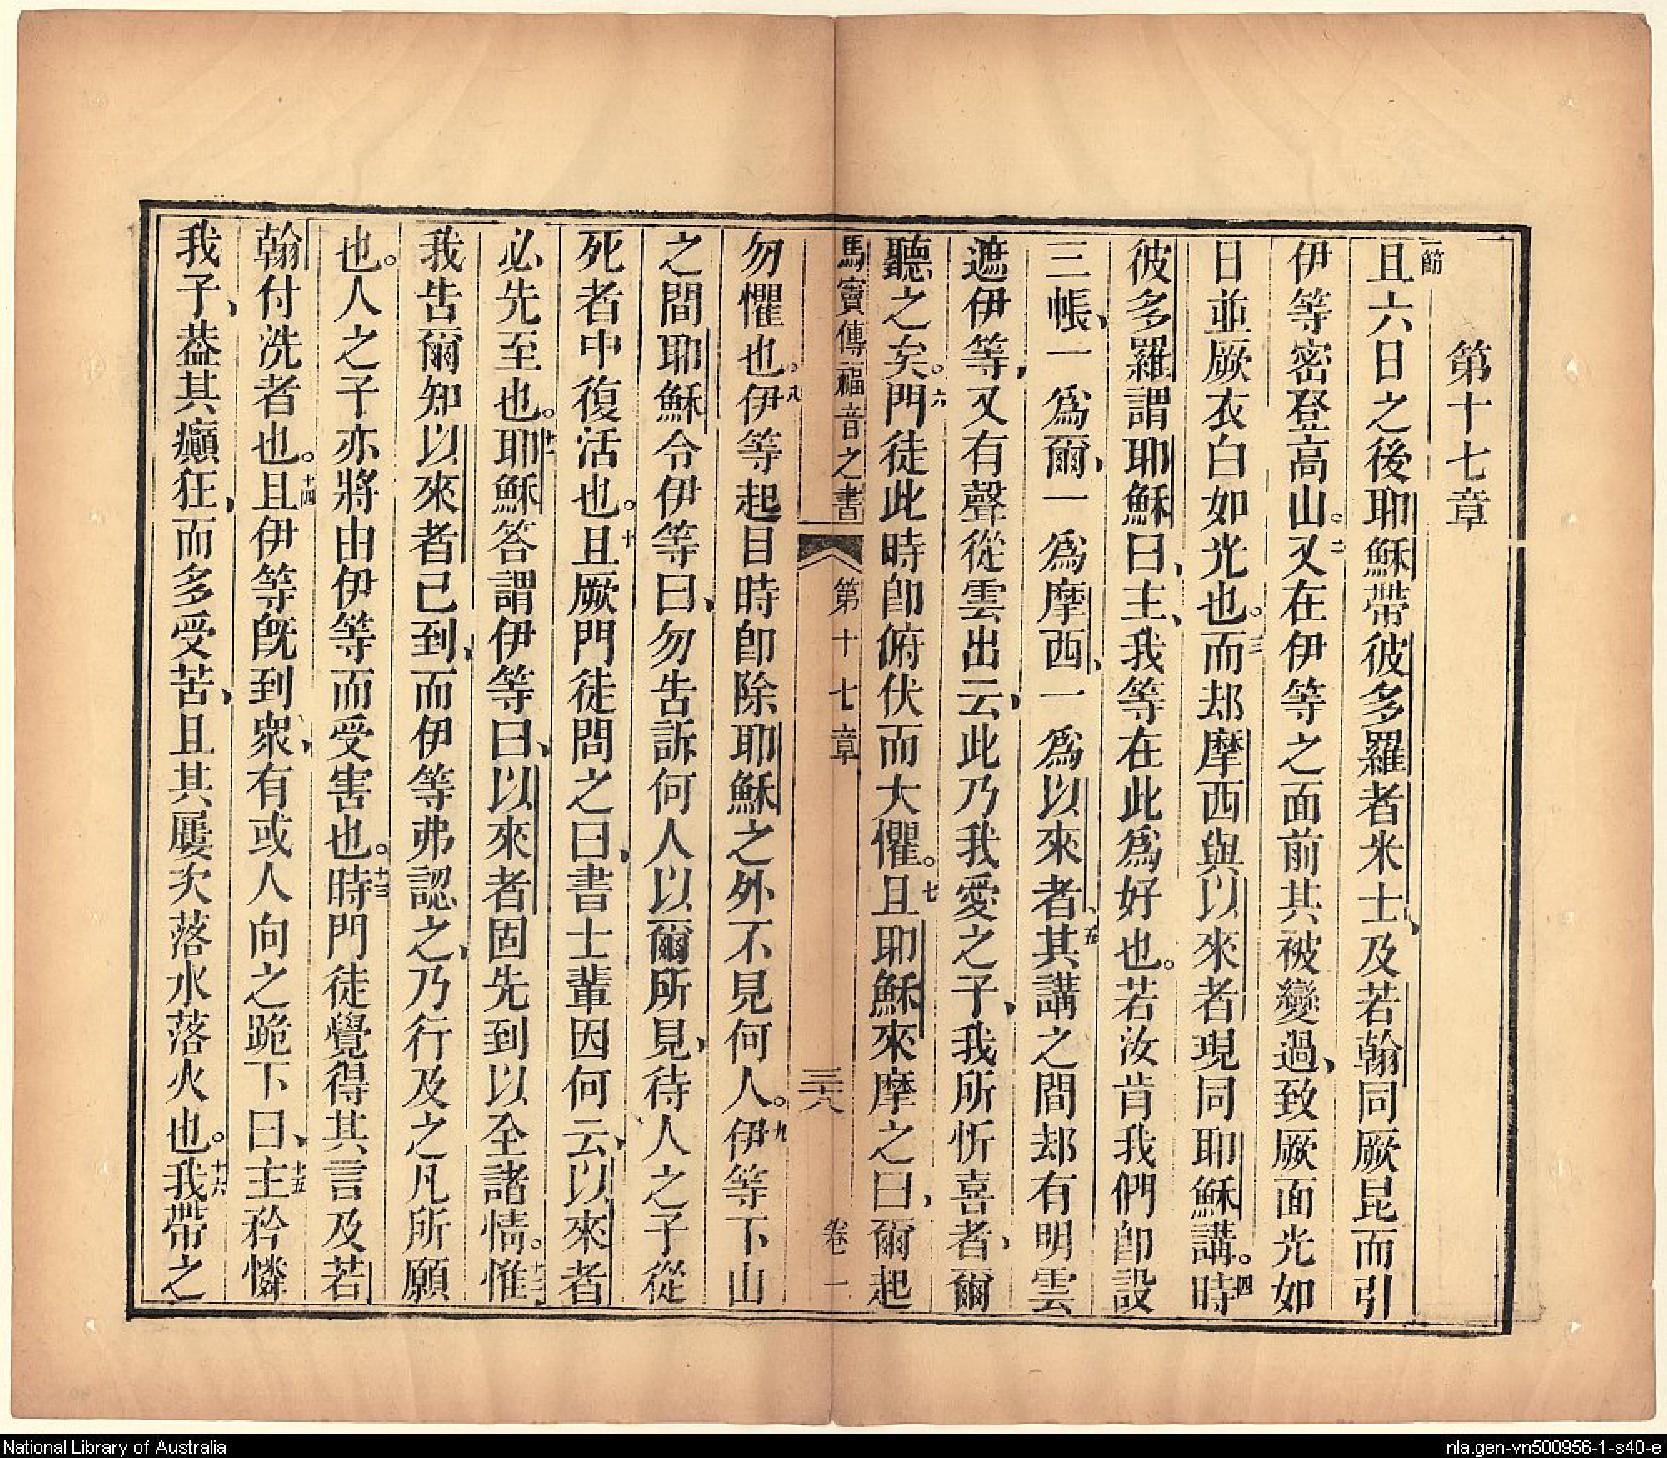 第十七章
節
且六日之後耶穌帶彼多羅者米士、及若翰同厥昆而引
伊等密登高山。二又在伊等之面前其被變過、致厥面光如
日並厥衣白如光也。三而却摩西與以來者現同耶穌講。四時
彼多羅謂耶穌曰、主、我等在此為好也。若汝肯我們卽設
三帳、一為爾、一為摩西、一為以來者、五其講之間却有明雲
遮伊等、又有聲從雲出云、此乃我愛之子、我所忻喜者、爾
聽之矣。六門徒此時卽俯伏而大懼。七且耶穌來摩之曰、爾起
馬竇傳福音之書 第十七章 三八 卷一
勿懼也。八伊等起目時卽除耶穌之外不見何人。九伊等下山
之間耶穌令伊等曰、勿告訴何人以爾所見、待人之子從
死者中復活也。十且厥門徒問之曰、書士輩因何云、以來者
必先至也。十一耶穌答謂伊等曰、以來者固先到以全諸情。十二惟
我告爾知以來者已到、而伊等弗認之、乃行及之凡所願
也。人之子亦將由伊等而受害也。十三時門徒覺得其言及若
翰付洗者也。十四且伊等旣到衆、有或人向之跪下曰、十五主矜憐
我子、葢其癲狂、而多受苦、且其屢次落水落火也。十六我帶之
National Library of Australia
nla.gen-vn500956-1-s40-e